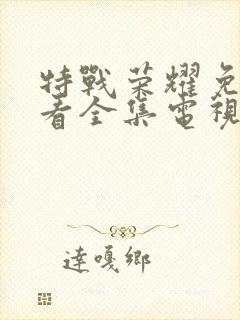 特戰荣耀免
看全集電視
達嘎鄉